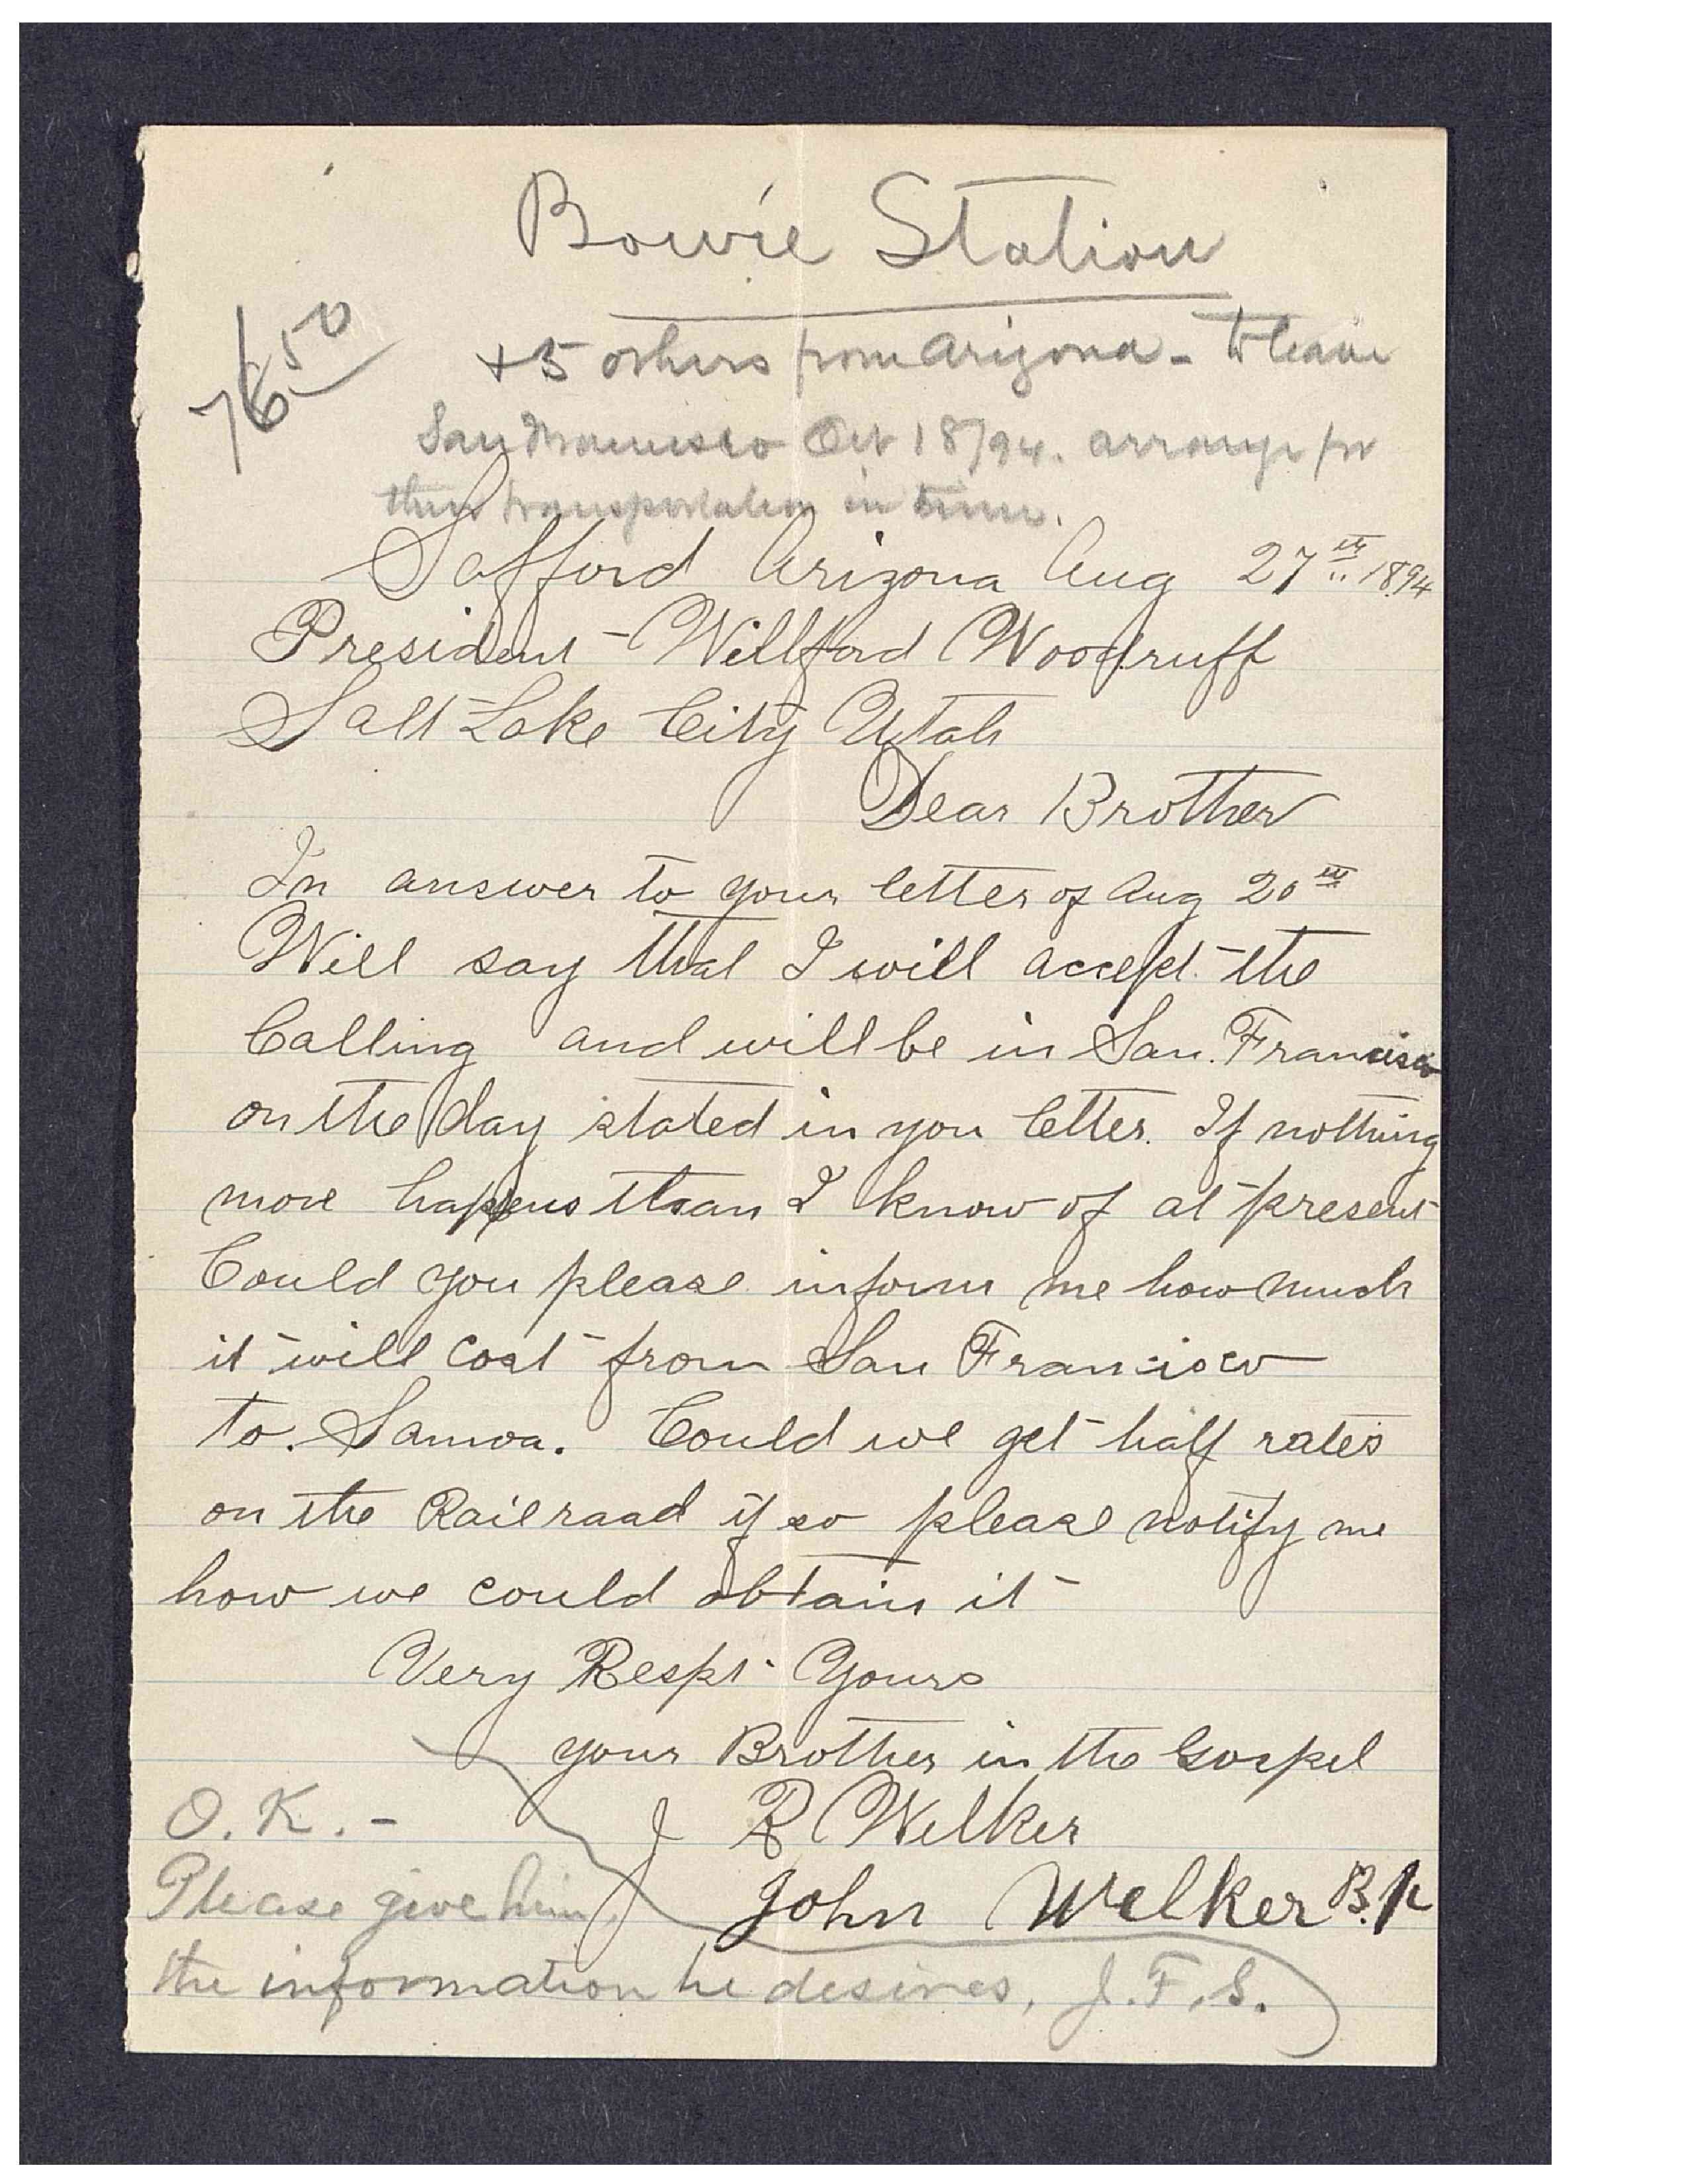 Bowie Station
76 50
+ 5 others from Arizona - to leave
San Francisco Oct 18/94. arrange for
their transportation in time.
Safford Arizona Aug 27th 1894
President Willford Woodruff
Salt Lake City Utah
Dear Brother
In answer to your letter of Aug 20th
Will say that I will accept the
Calling and will be in San. Francisco
on the day stated in you letter. If nothing
more happens than I know of at present
Could you please inform me how much
it will cost from San Francisco
to. Samoa. Could we get half rates
on the Railraad if so please notify me
how we could obtain it
Very Respt Yours
your Brother in the Gospel
J R Welker
John Welker B.p
O.K. -
Please give him
the information he desires, J.F.S.